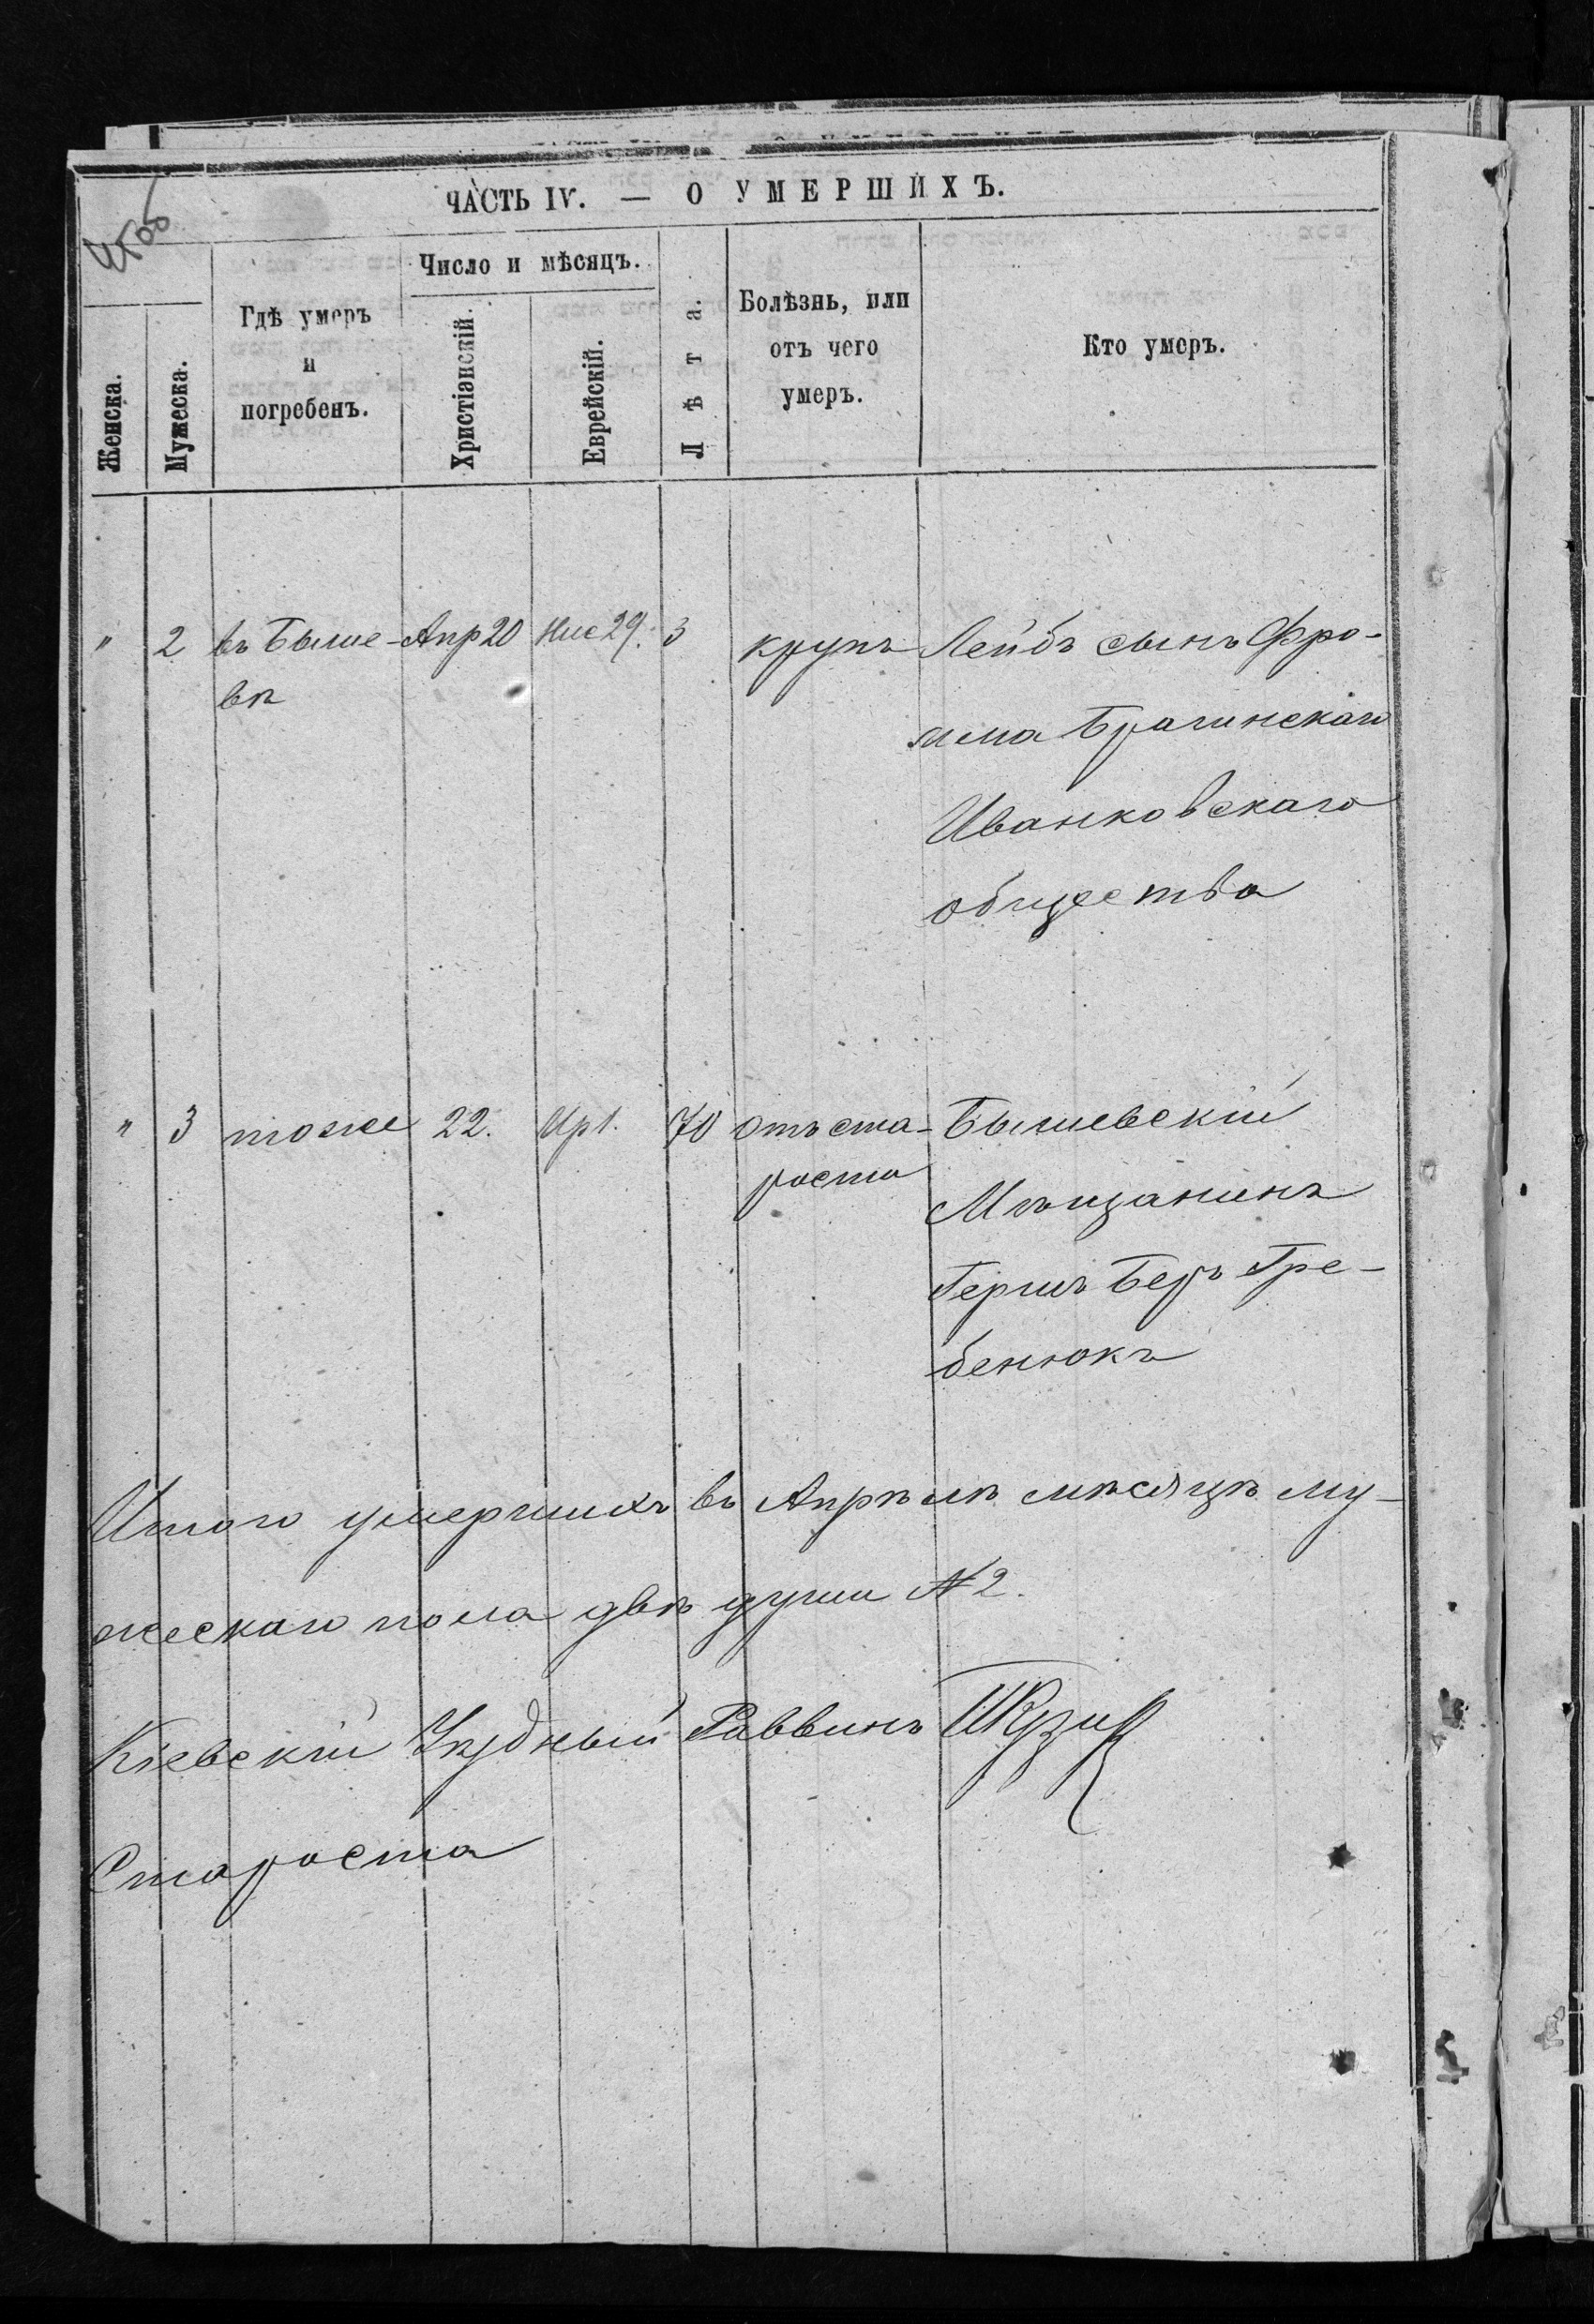 ЧАСТЬ IV. — О УМЕРШИХЪ.
Женска.
Мужеска.
Гдѣ умеръ
и
погребенъ.
Число и мѣсяцъ.
Христіанскій.
Еврейскій.
Лѣта.
Болѣзнь, или
отъ чего
умеръ.
Кто умеръ.
" 2 въ Быше- Апр 20 Нис 29. 3 крупъ Лейбъ сынъ Фро-
вѣ
има Брагинскаго
Иванковскаго
общества
" 3 тоже 22. Ир 1. 70 отъ ста- Бышевскій
рости
Мѣщанинъ
Гершъ Беръ Гре-
бенюкъ
Итого умершихъ въ Апрѣлѣ мѣсяцѣ му-
жескаго пола двѣ души № 2.
Кіевскій Уѣздный Раввинъ
Староста